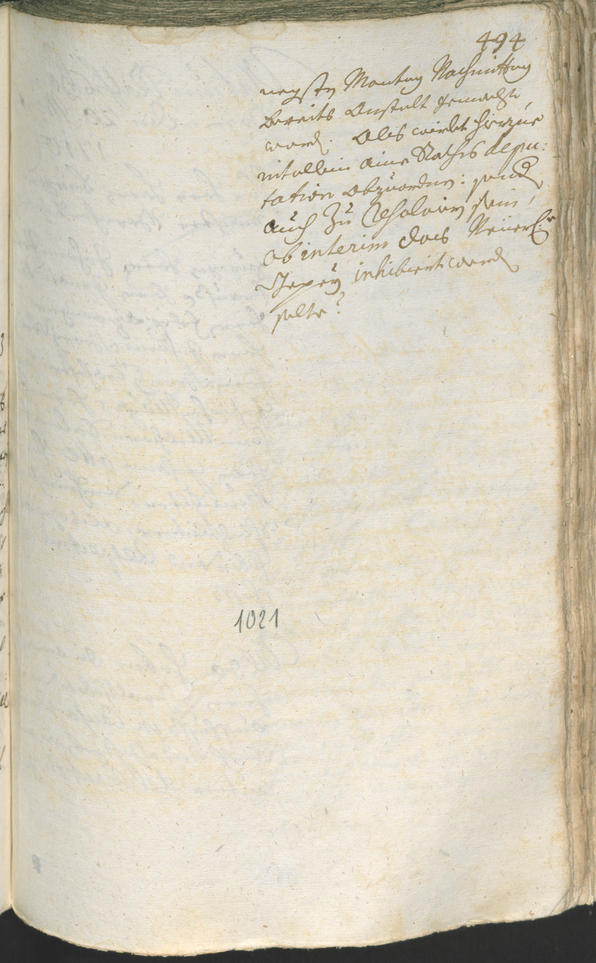 494
negsten Montag Nachmittag
bereits Anstalt gemacht
word. Als wirdt hierzue
nit allein aine Raths depu:
tation abzuordnen: sond
auch zu resolvirn sein,
ob interim das
inhibiert werd
solte?
1021